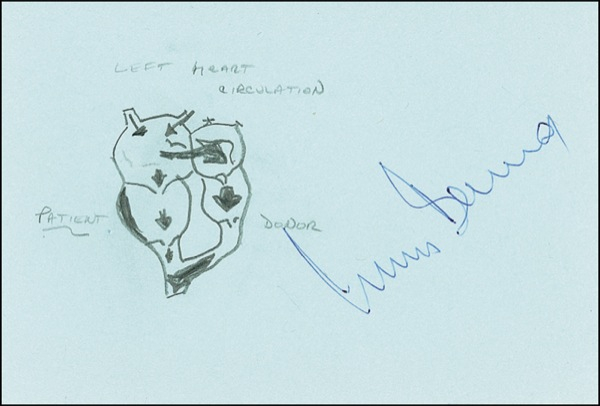 LEFT HEART
CIRCULATION
PATIENT
DONOR